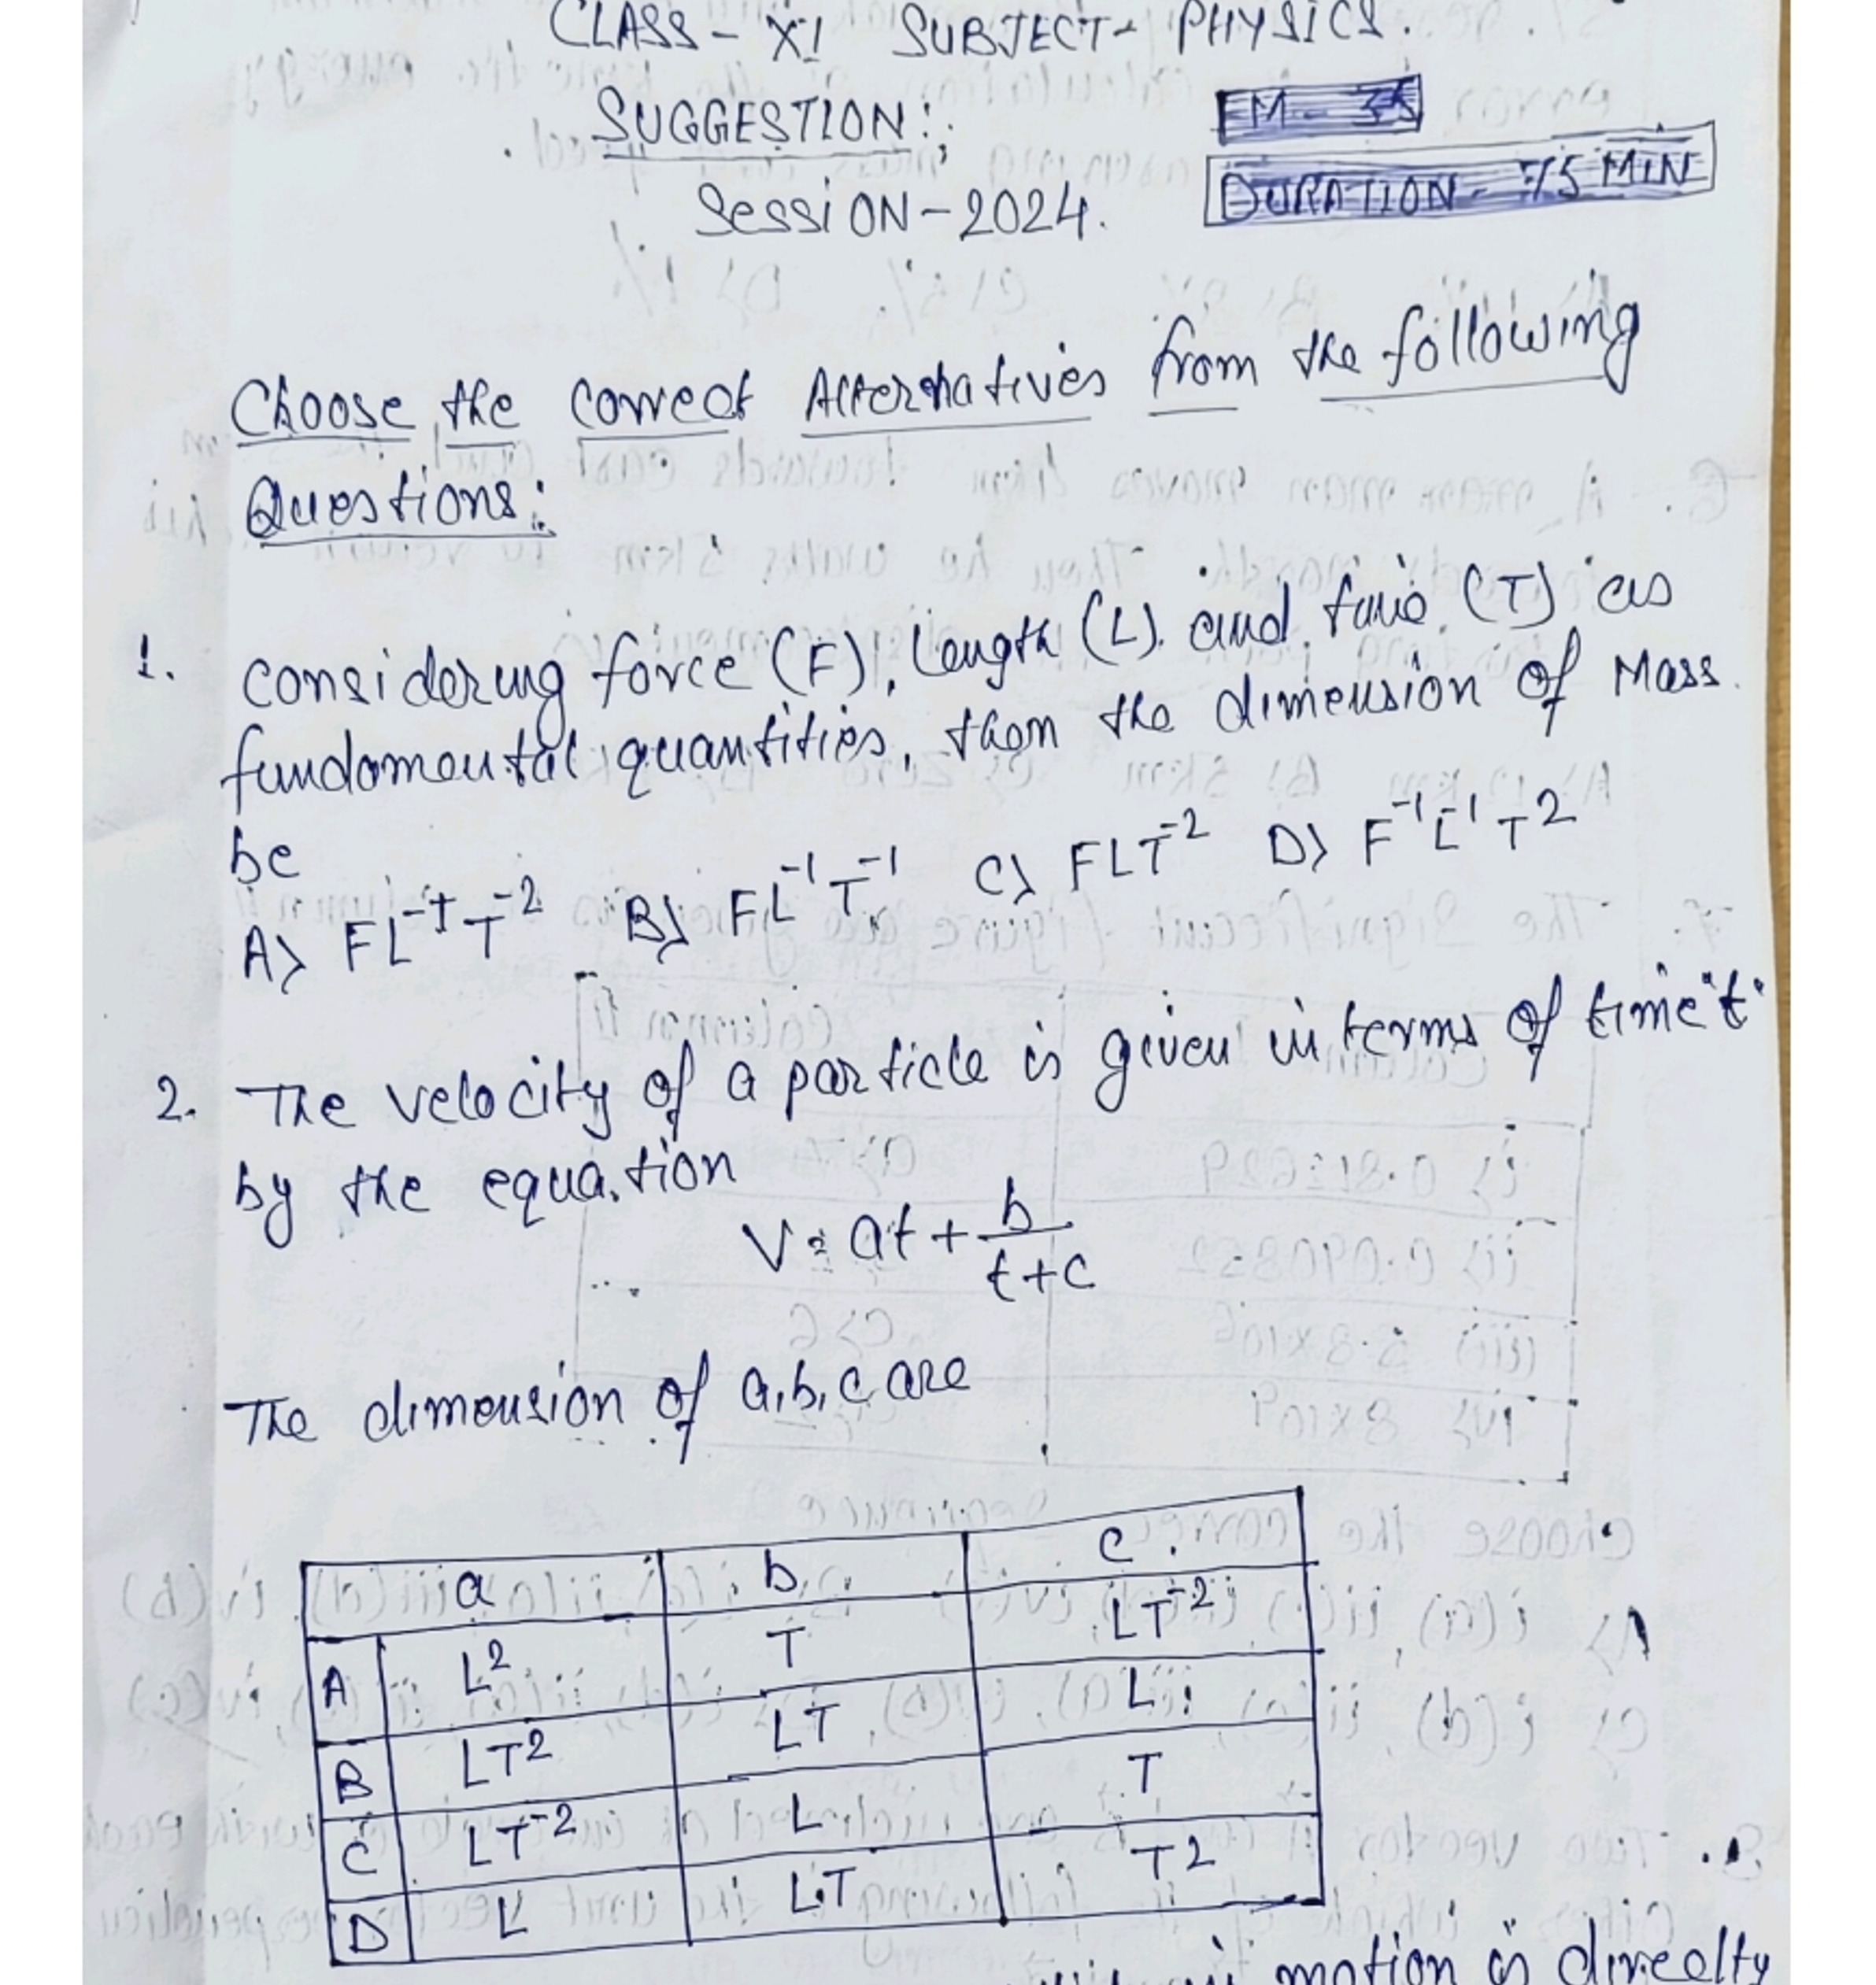 CLASS - XI SUBJECT - PHYSICS.
SUGGESTION:
FM - 35
SESSION - 2024.
DURATION - 75 MIN
Choose the correct Alternatives from the following
Questions:
1. Considering force (F), Length (L) and time (T) as
fundamental quantities, then the dimension of Mass
be
A) FL⁻¹T⁻² B) FL⁻¹T⁻¹ C) FLT⁻² D) F⁻¹L⁻¹T²
2. The velocity of a particle is given in terms of time "t"
by the equation
V = at + b/(t+c)
The dimension of a, b, c are
a b c
A L² T LT⁻²
B LT² LT L
C LT⁻² L T
D L LT T²
motion is direclty